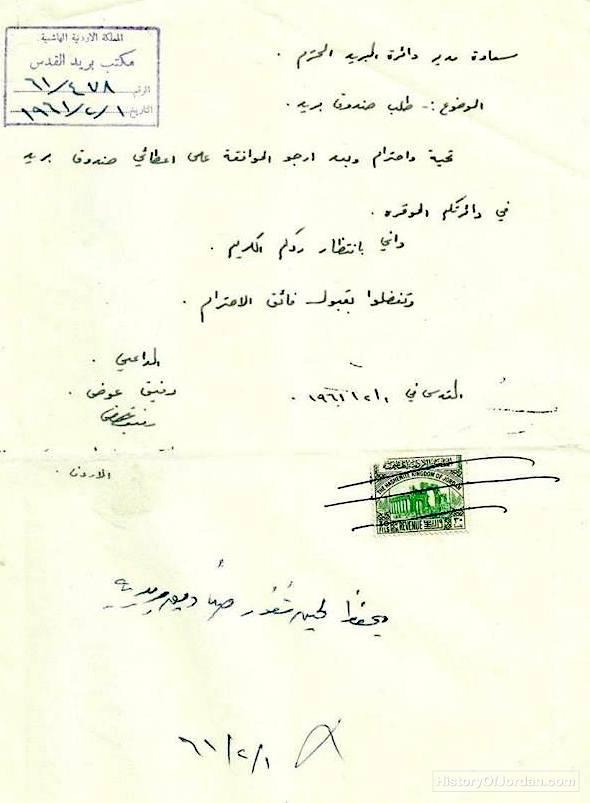 المملكة الاردنية الهاشمية
مكتب بريد القدس
الرقم ٦١/٤٧٨
التاريخ ١٩٦١/٢/١
سعادة مدير دائرة البريد المحترم .
الموضوع :- طلب صندوق بريد .
تحية واحترام وبعد ارجو الموافقة على اعطائي صندوق بريد
في دائرتكم الموقره .
واني بانتظار ردكم الكريم .
وتفضلوا بقبول فائق الاحترام .
الداعي .
رفيق عوض .
القدس في ١٩٦١/٢/١ .
الاردن .
THE HASHEMITE KINGDOM OF JORDAN
REVENUE
يحفظ لحين شغور صناديق بريدية
٦١/٢/١
HistoryOfJordan.com